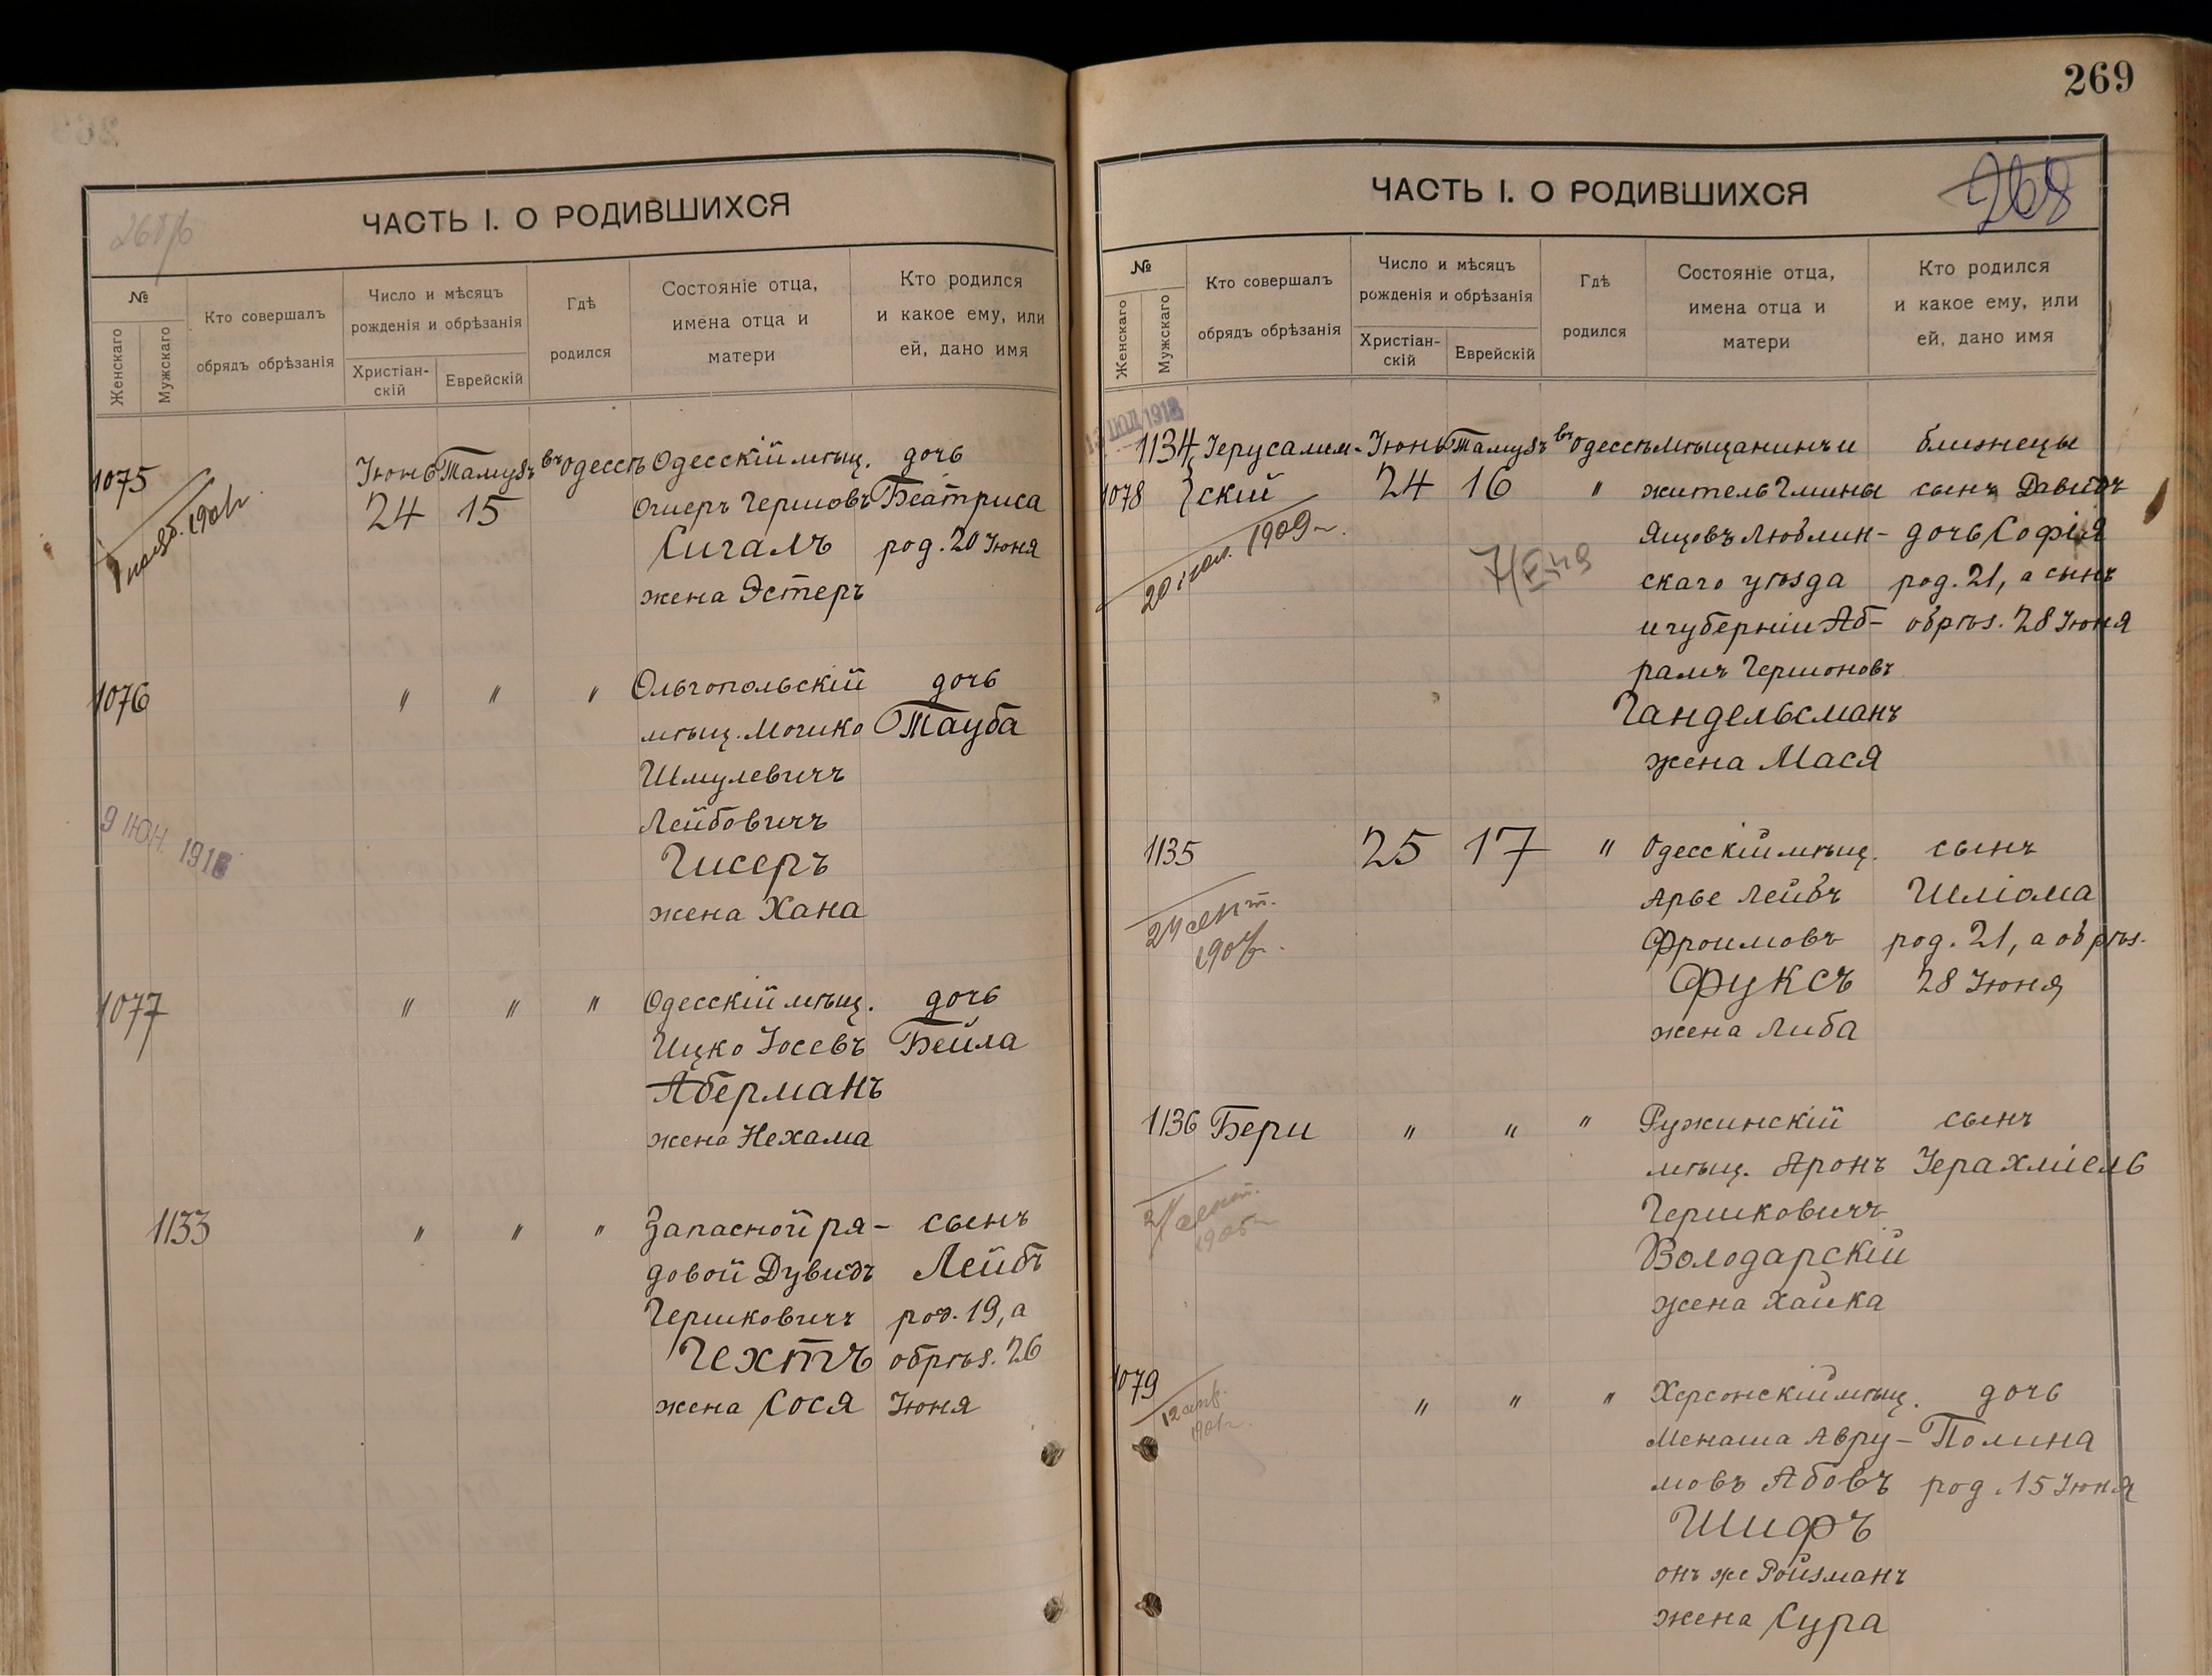 ЧАСТЬ I. О РОДИВШИХСЯ
№
Женскаго
Мужскаго
Кто совершалъ
обрядъ обрѣзанія
Число и мѣсяцъ
рожденія и обрѣзанія
Христіан-
скій
Еврейскій
Гдѣ
родился
Состояніе отца,
имена отца и
матери
Кто родился
и какое ему, или
ей, дано имя
1075
Іюнь Тамузъ въ Одессѣ Одесскій мѣщ. дочь
24 15 Ошеръ Гершовъ Беатриса
Сигалъ род. 20 Іюня
жена Эстеръ
1076 " " " Ольгопольскій дочь
мѣщ. Мошко Тауба
Шмулевичъ
Лейбовичъ
Гисеръ
жена Хана
9 ІЮН. 191
1077 " " " Одесскій мѣщ. дочь
Ицко Іосевъ Бейла
Аберманъ
жена Нехама
1133 " " " Запасной ря- сынъ
довой Дувидъ Лейбъ
Гершковичъ род. 19, а
Гехтъ обрѣз. 26
жена Сося Іюня
269
268
ЧАСТЬ I. О РОДИВШИХСЯ
№
Женскаго
Мужскаго
Кто совершалъ
обрядъ обрѣзанія
Число и мѣсяцъ
рожденія и обрѣзанія
Христіан-
скій
Еврейскій
Гдѣ
родился
Состояніе отца,
имена отца и
матери
Кто родился
и какое ему, или
ей, дано имя
1134 Іерусалим- Іюнь Тамузъ въ Одессѣ мѣщанинъ и близнецы
1078 скій 24 16 " житель Глины сынъ Давидъ
Ящовъ Люблин- дочь Софія
20 1909 г.
скаго уѣзда род. 21, а сынъ
и губерніи Аб- обрѣз. 28 Іюня
рамъ Гершоновъ
Гандельсманъ
жена Мася
1135 25 17 " Одесскій мѣщ. сынъ
Арье Лейбъ Шліома
Фроимовъ род. 21, а обрѣз.
Фуксъ 28 Іюня
жена Либа
сент.
1136 Бери " " " Ружинскій сынъ
мѣщ. Аронъ Іерахміель
Гершковичъ
Володарскій
жена Хайка
сент.
1079 " " " Херсонскій мѣщ. дочь
Менаша Авру- Полина
мовъ Абовъ род. 15 Іюня
Шифъ
онъ же Ройзманъ
жена Сура